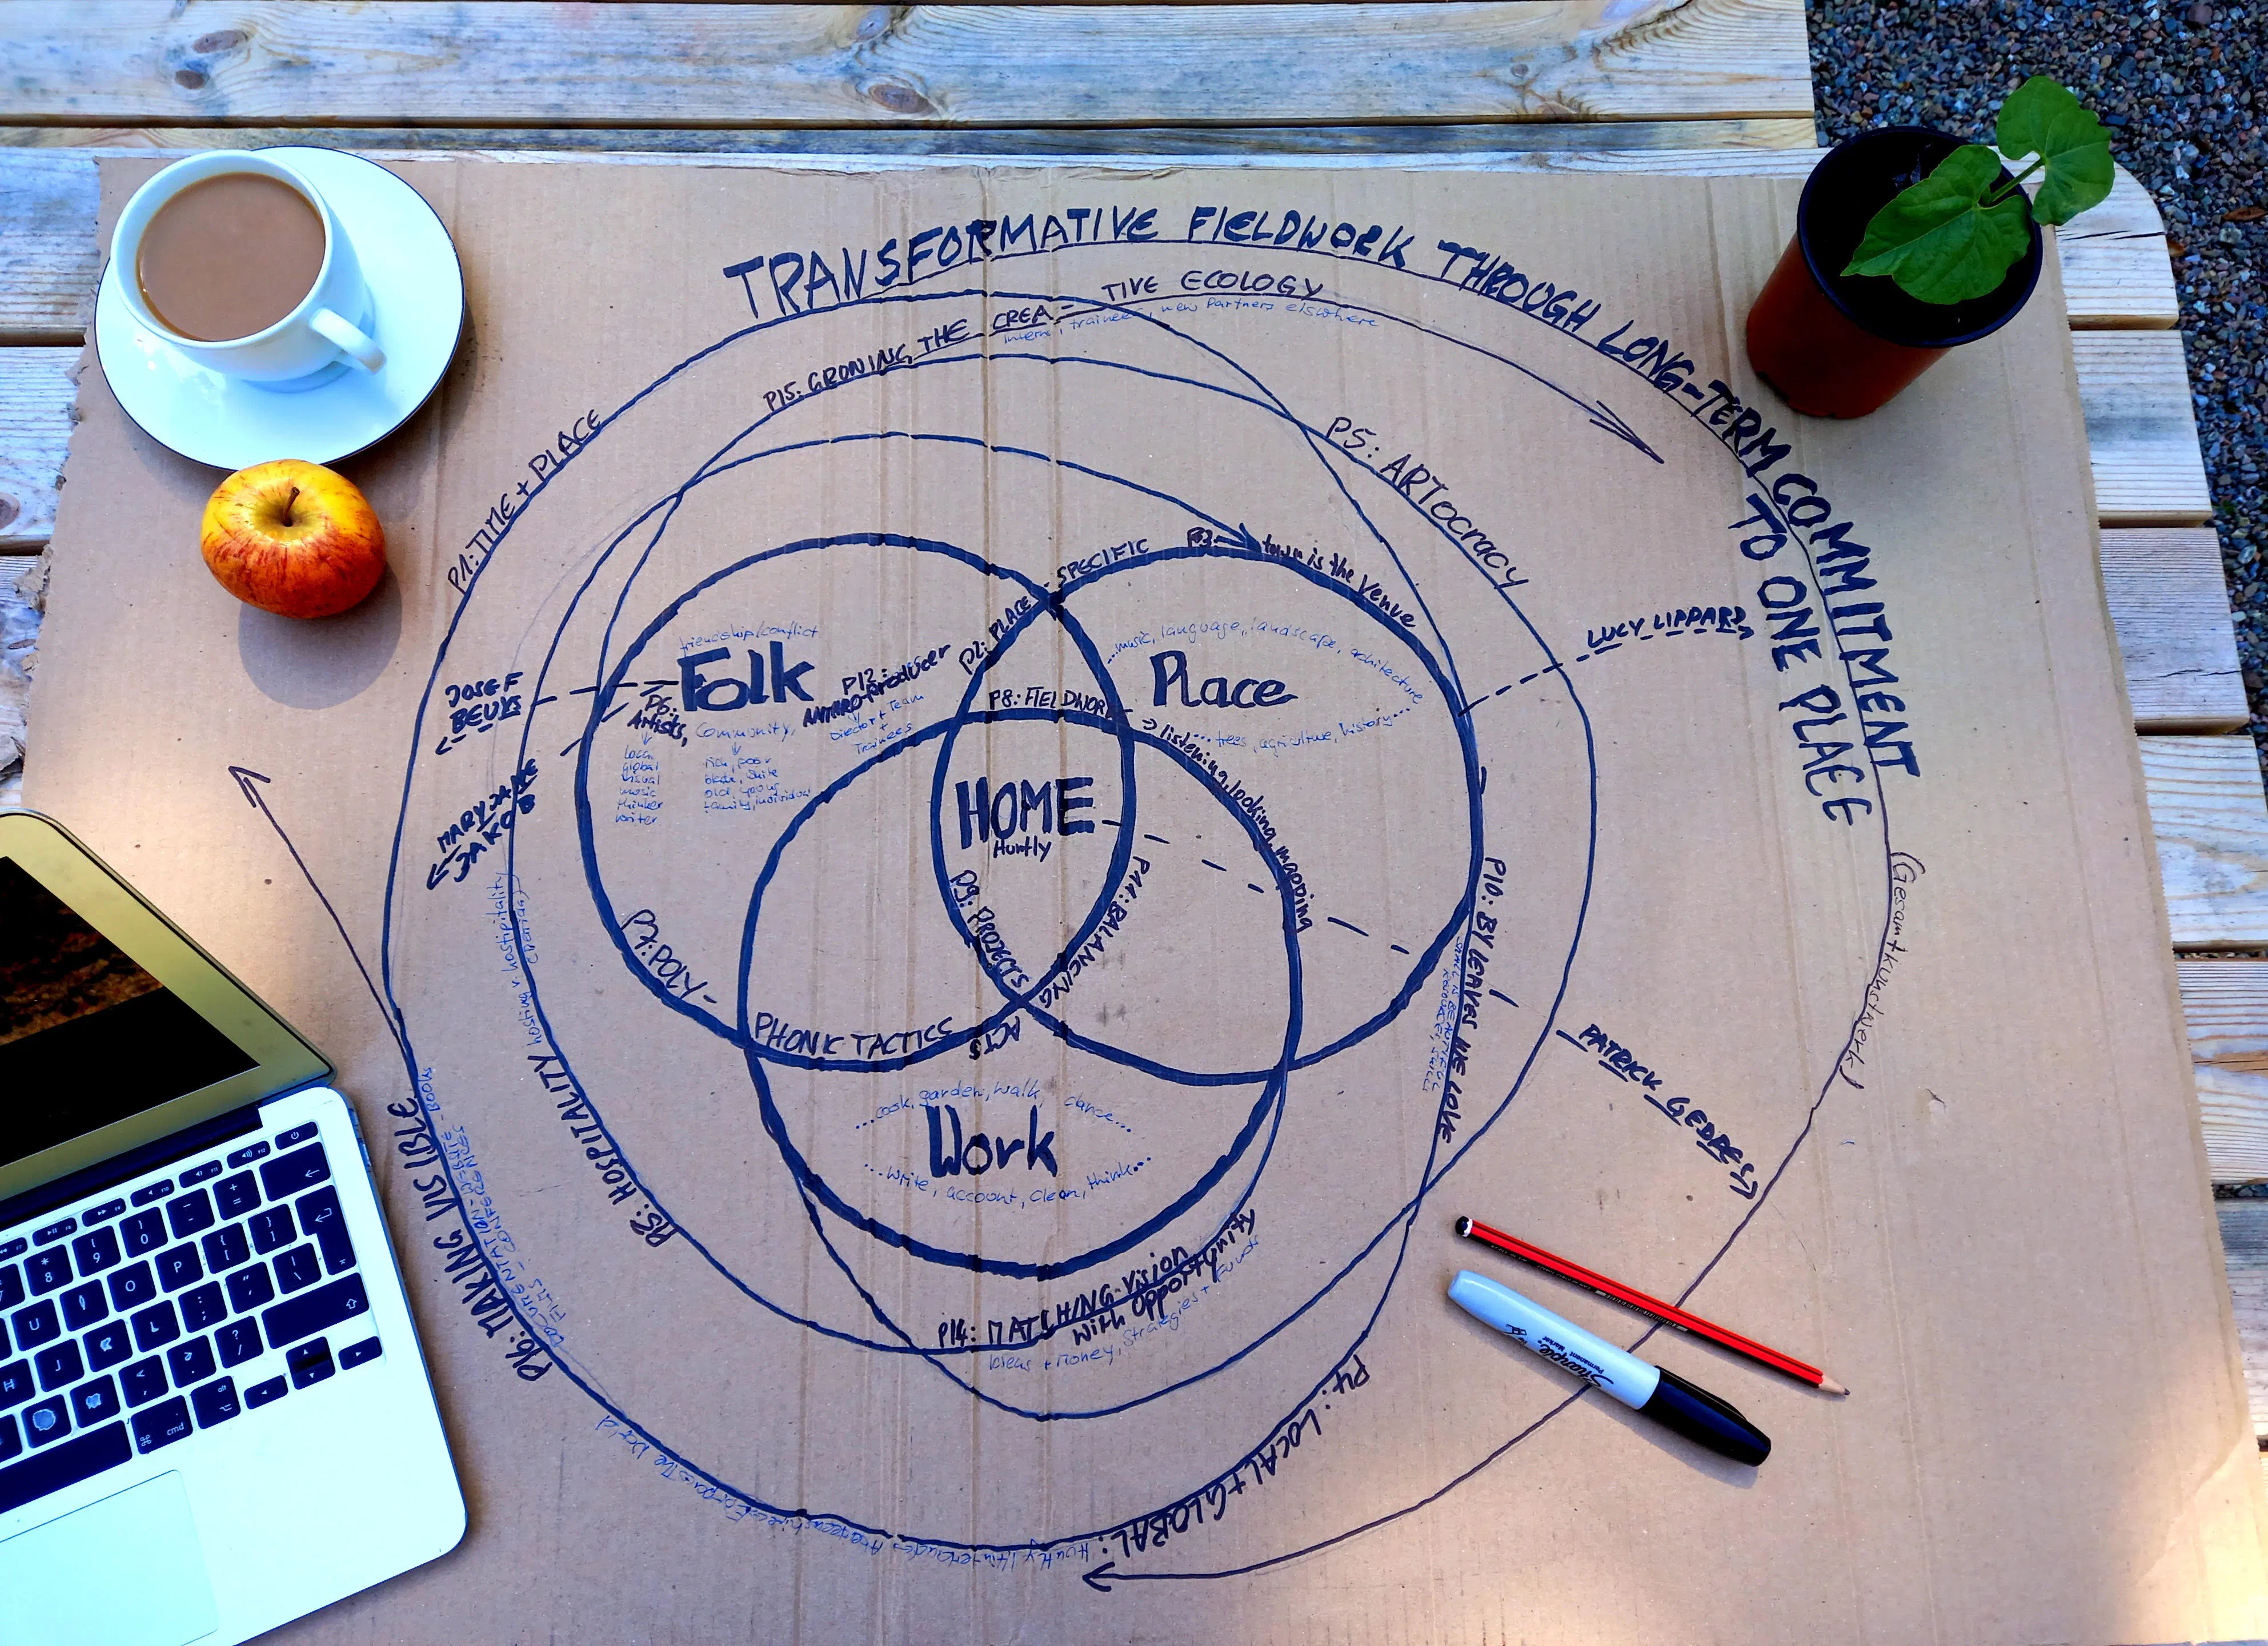 TRANSFORMATIVE FIELDWORK THROUGH LONG-TERM COMMITMENT
TO ONE PLACE
(Gesamtkunstwerk)
P15: GROWING THE CREA= TIVE ECOLOGY
trainees, new Partners elswhere
P1: TIME + PLACE
P5: ARTocracy
P2: PLACE-SPECIFIC
P3: town is the Venue
LUCY LIPPARD
JOSEF
BEUYS
MARY JANE
JAKOB
friendship/conflict
Folk
P12:
ANTHRO-Producer
Director + Team
Trainees
P6:
Artists, Community,
local
global
visual
music
thinker
writer
rich, poor
old, young
family, individual
...music, language, landscape, architecture
Place
...trees, agriculture, history...
P8: FIELDWORK
=> listening, looking, mapping
HOME
Huntly
P9: PROJECTS
P11: BALANCING
ACTS
P7: POLY-
PHONIC TACTICS
P10: BY LEAVES WE LIVE
PATRICK GEDDES
...cook, garden, walk, dance...
Work
...write, account, clean, think...
P14: MATCHING-Vision
with Opportunity
Ideas + Money, Strategies + Funds
HOSPITALITY hosting v. hostipitality
P16: MAKING VISIBLE
DOCUMENTATION - WEBSITE - BOOKS
FILMS - CONFERENCES
P4: LOCAL + GLOBAL: Huntly
The World
Sharpie
Permanent Marker
cmd